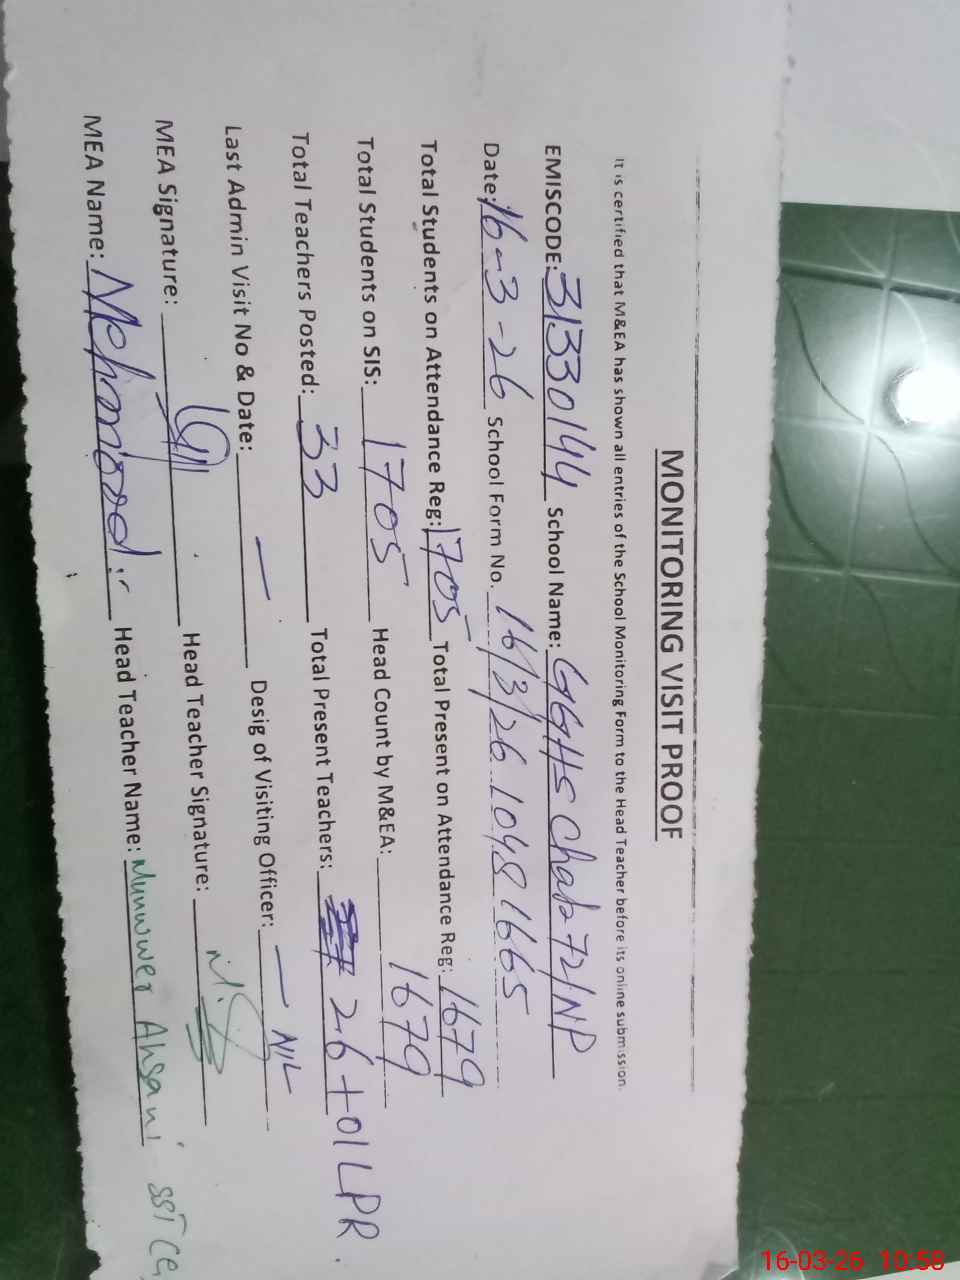 MONITORING VISIT PROOF
It is certified that M&EA has shown all entries of the School Monitoring Form to the Head Teacher before its online submission.
EMISCODE: 31330144 School Name: GGHS Chak 72/NP
Date: 16-3-26 School Form No. 16/3/26 10481665
Total Students on Attendance Reg: 1705 Total Present on Attendance Reg: 1679
Total Students on SIS: 1705 Head Count by M&EA: 1679
Total Teachers Posted: 33 Total Present Teachers: 26 + 01 LPR.
Last Admin Visit No & Date: — Desig of Visiting Officer: — NIL
MEA Signature: Head Teacher Signature:
MEA Name: Mehmood Head Teacher Name: Munwwer Ahsani
16-03-26 10:58